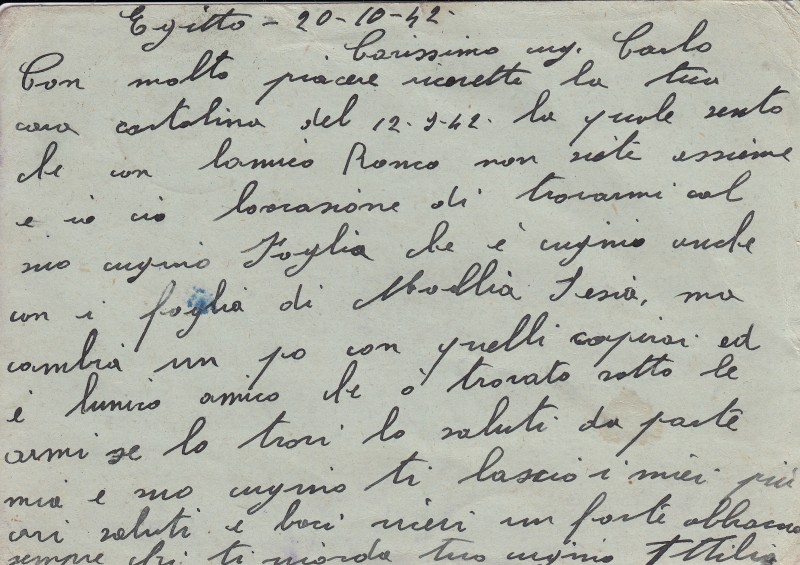 Egitto - 20-10-42.
Carissimo cug. Carlo
Con molto piacere ricevetti la tua
cara cartolina del 12-9-42. la quale sento
che con lamico Ronco non siete assieme
e io ciò loccasione di trovarmi col
suo cugino Foglia che è cugino anche
con i foglia di Moellia Sesia, ma
cambia un po con quelli capirai ed
è lunico amico che ò trovato sotto le
armi se lo trovi lo saluti da parte
mia e suo cugino ti lascio i miei più
cari saluti e baci ricevi un forte abbraccio
sempre chi ti ricorda tuo cugino Attilio